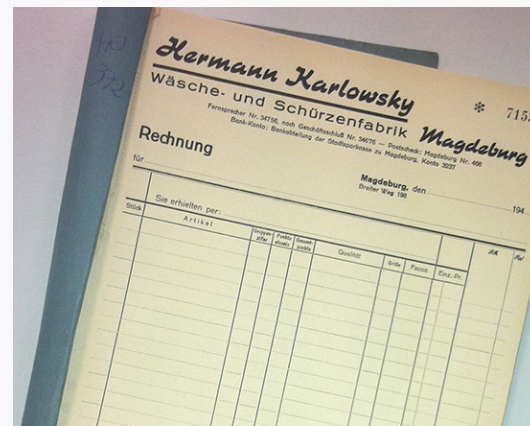 Hermann Karlowsky
Wäsche- und Schürzenfabrik Magdeburg
Fernsprecher Nr. 34756, nach Geschäftsschluß Nr. 34675 — Postscheck: Magdeburg Nr. 466
Bank-Konto: Bankabteilung der Stadtsparkasse zu Magdeburg, Konto 3237
Rechnung
Magdeburg, den 194
Breiter Weg 196
für
Sie erhielten per:
Stück Artikel Gruppen-ziffer Punkte einzeln Gesamt-punkte Qualität Größe Fasson Einz.-Pr.